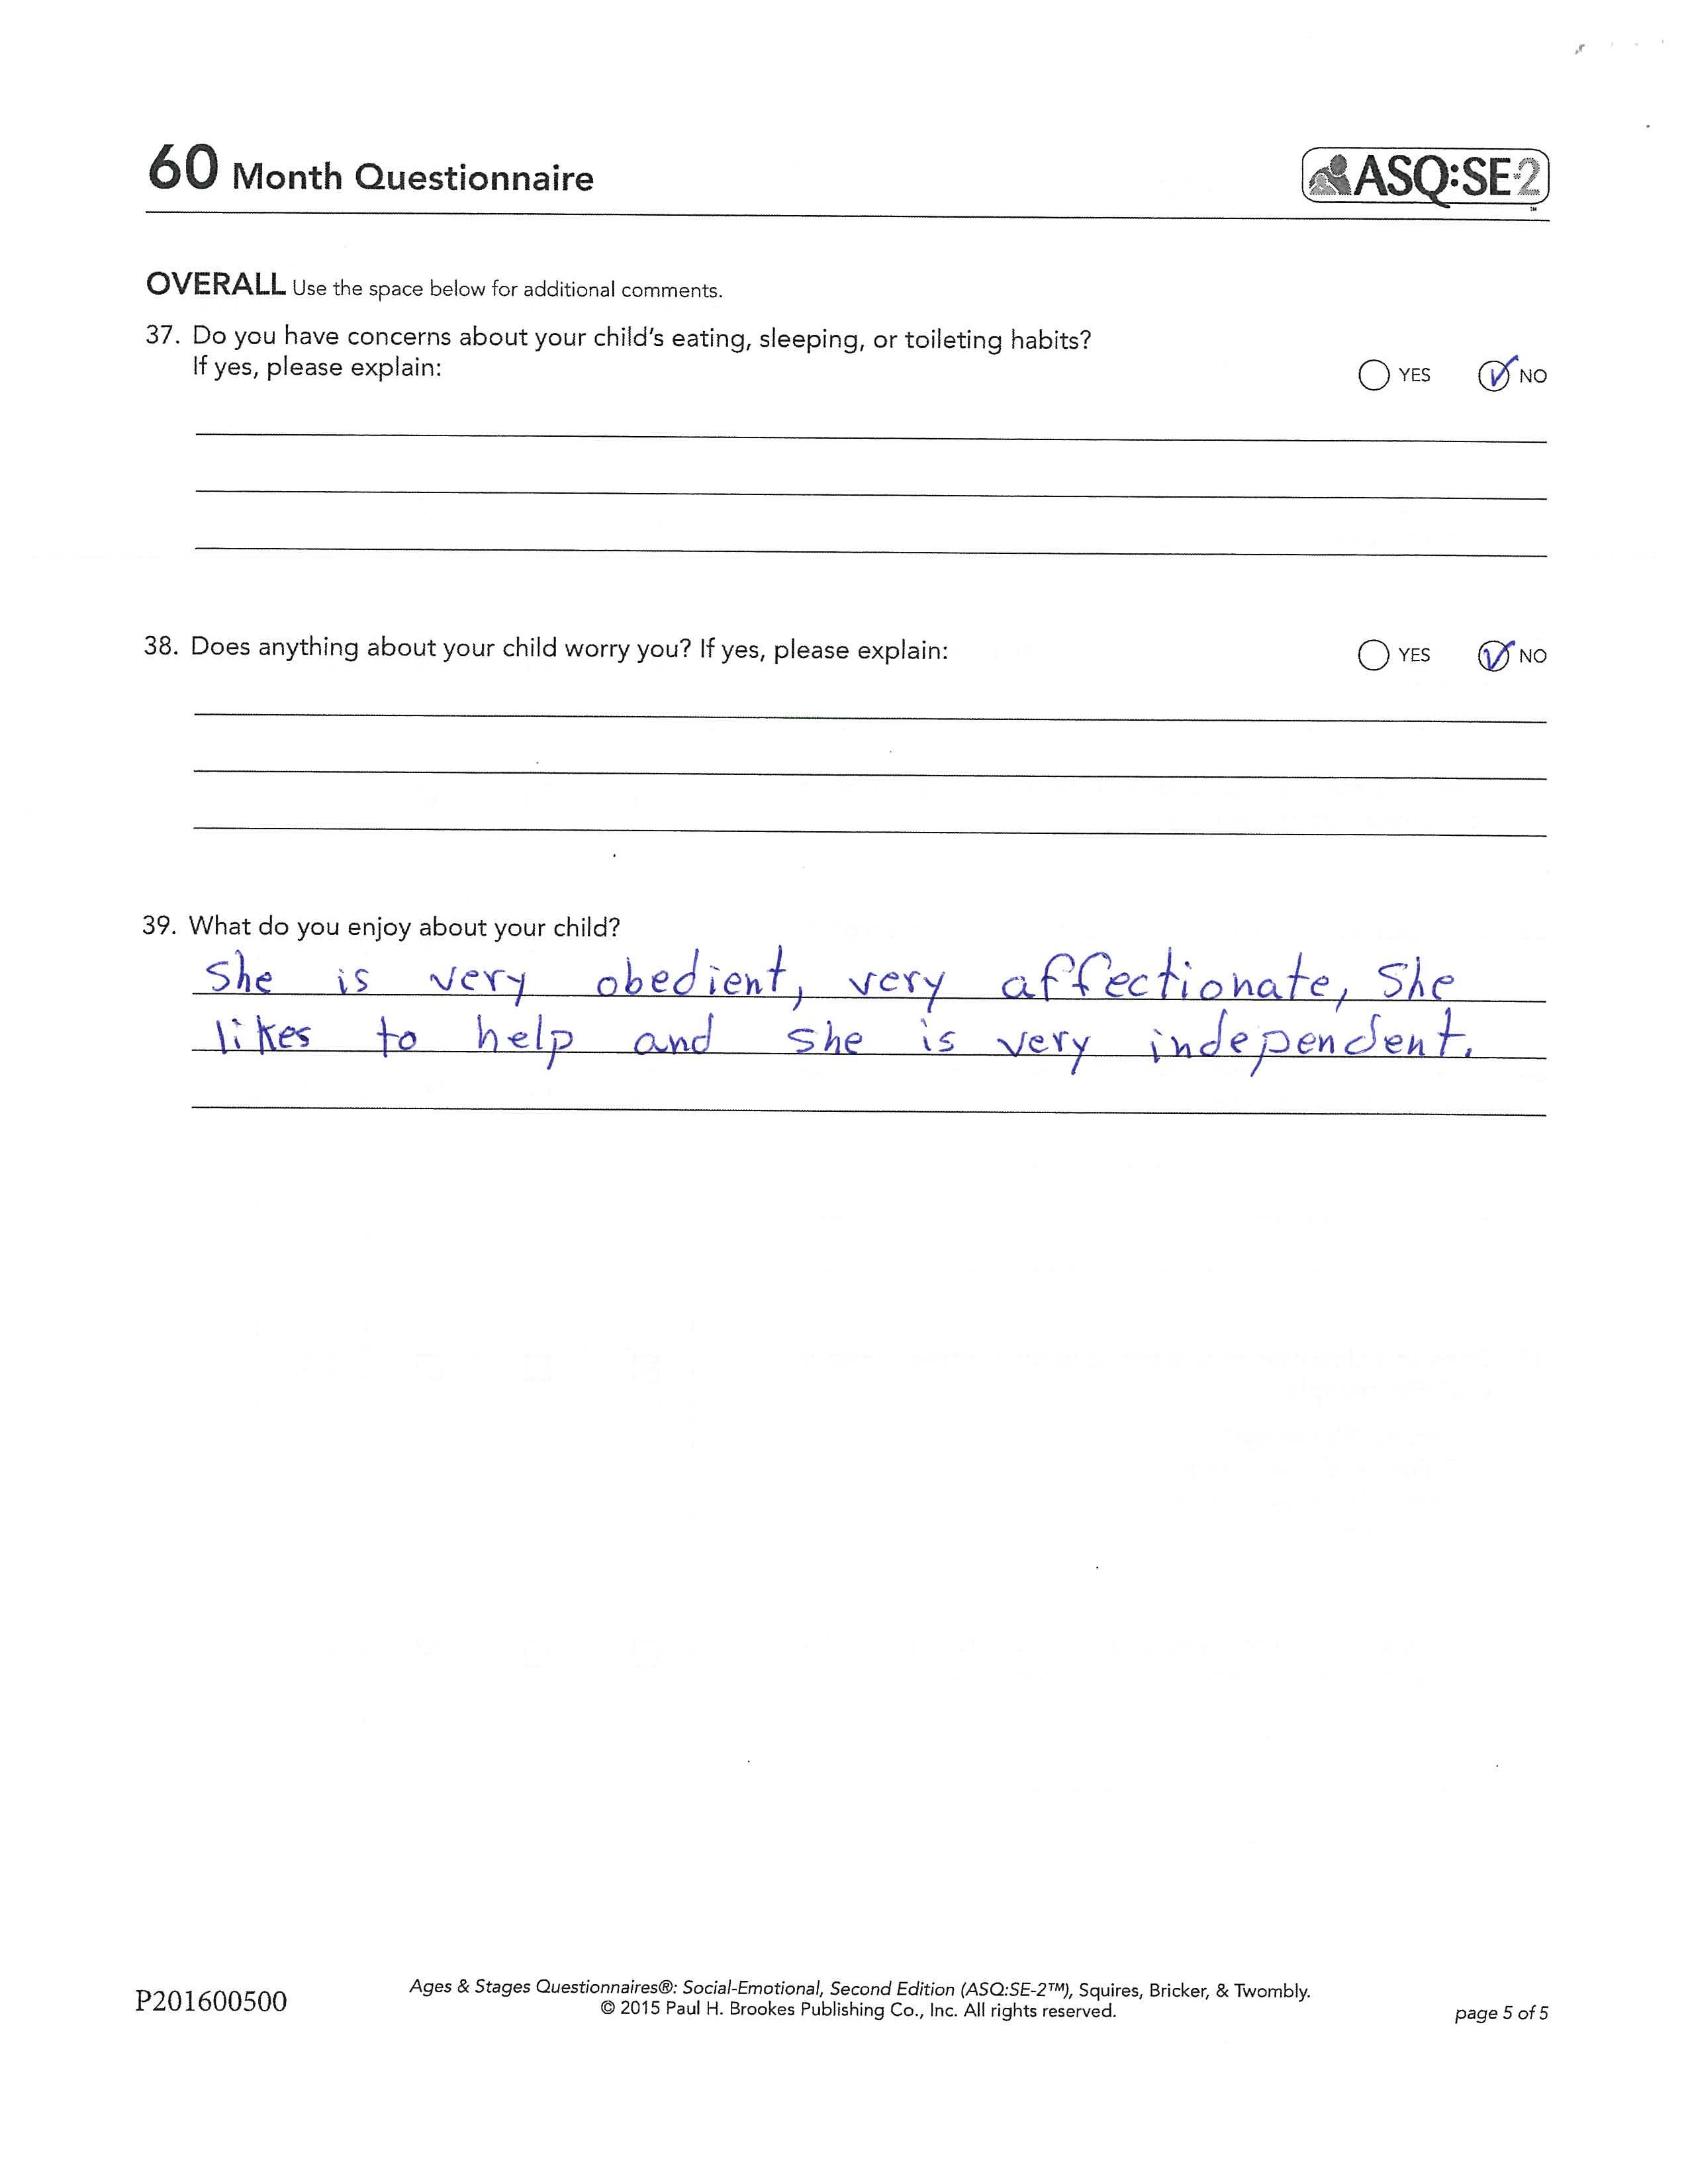 60 Month Questionnaire
ASQ:SE-2
SM
OVERALL Use the space below for additional comments.
37. Do you have concerns about your child's eating, sleeping, or toileting habits?
If yes, please explain:
YES NO
38. Does anything about your child worry you? If yes, please explain:
YES NO
39. What do you enjoy about your child?
She is very obedient, very affectionate, She
likes to help and she is very independent.
P201600500
Ages & Stages Questionnaires®: Social-Emotional, Second Edition (ASQ:SE-2™), Squires, Bricker, & Twombly.
© 2015 Paul H. Brookes Publishing Co., Inc. All rights reserved.
page 5 of 5